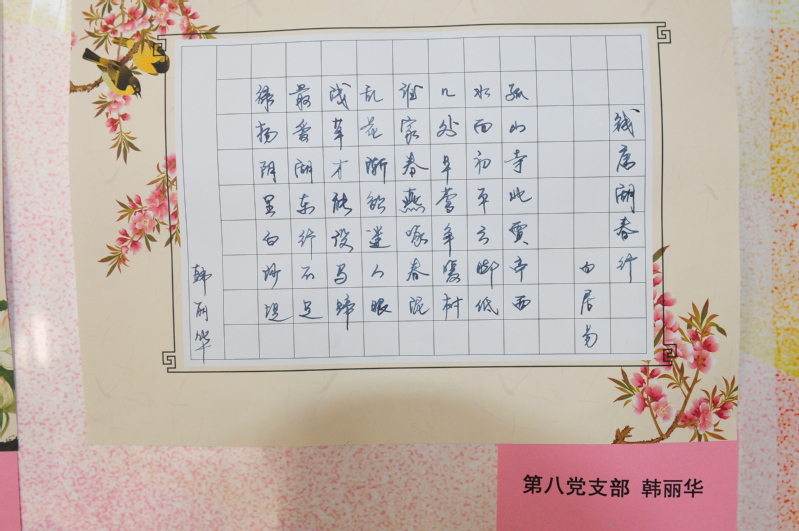 钱唐湖春行
白居易
孤山寺北贾亭西
水面初平云脚低
几处早莺争暖树
谁家春燕啄春泥
乱花渐欲迷人眼
浅草才能没马蹄
最爱湖东行不足
绿杨阴里白沙堤
韩丽华
第八党支部 韩丽华